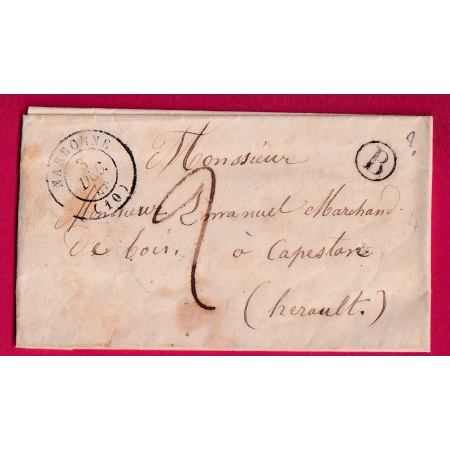 NARBONNE
DEC.
(10)
B
?
Monssieur
2
Monsieur Emanuel Marchand
de bois. à Capestan
(herault.)